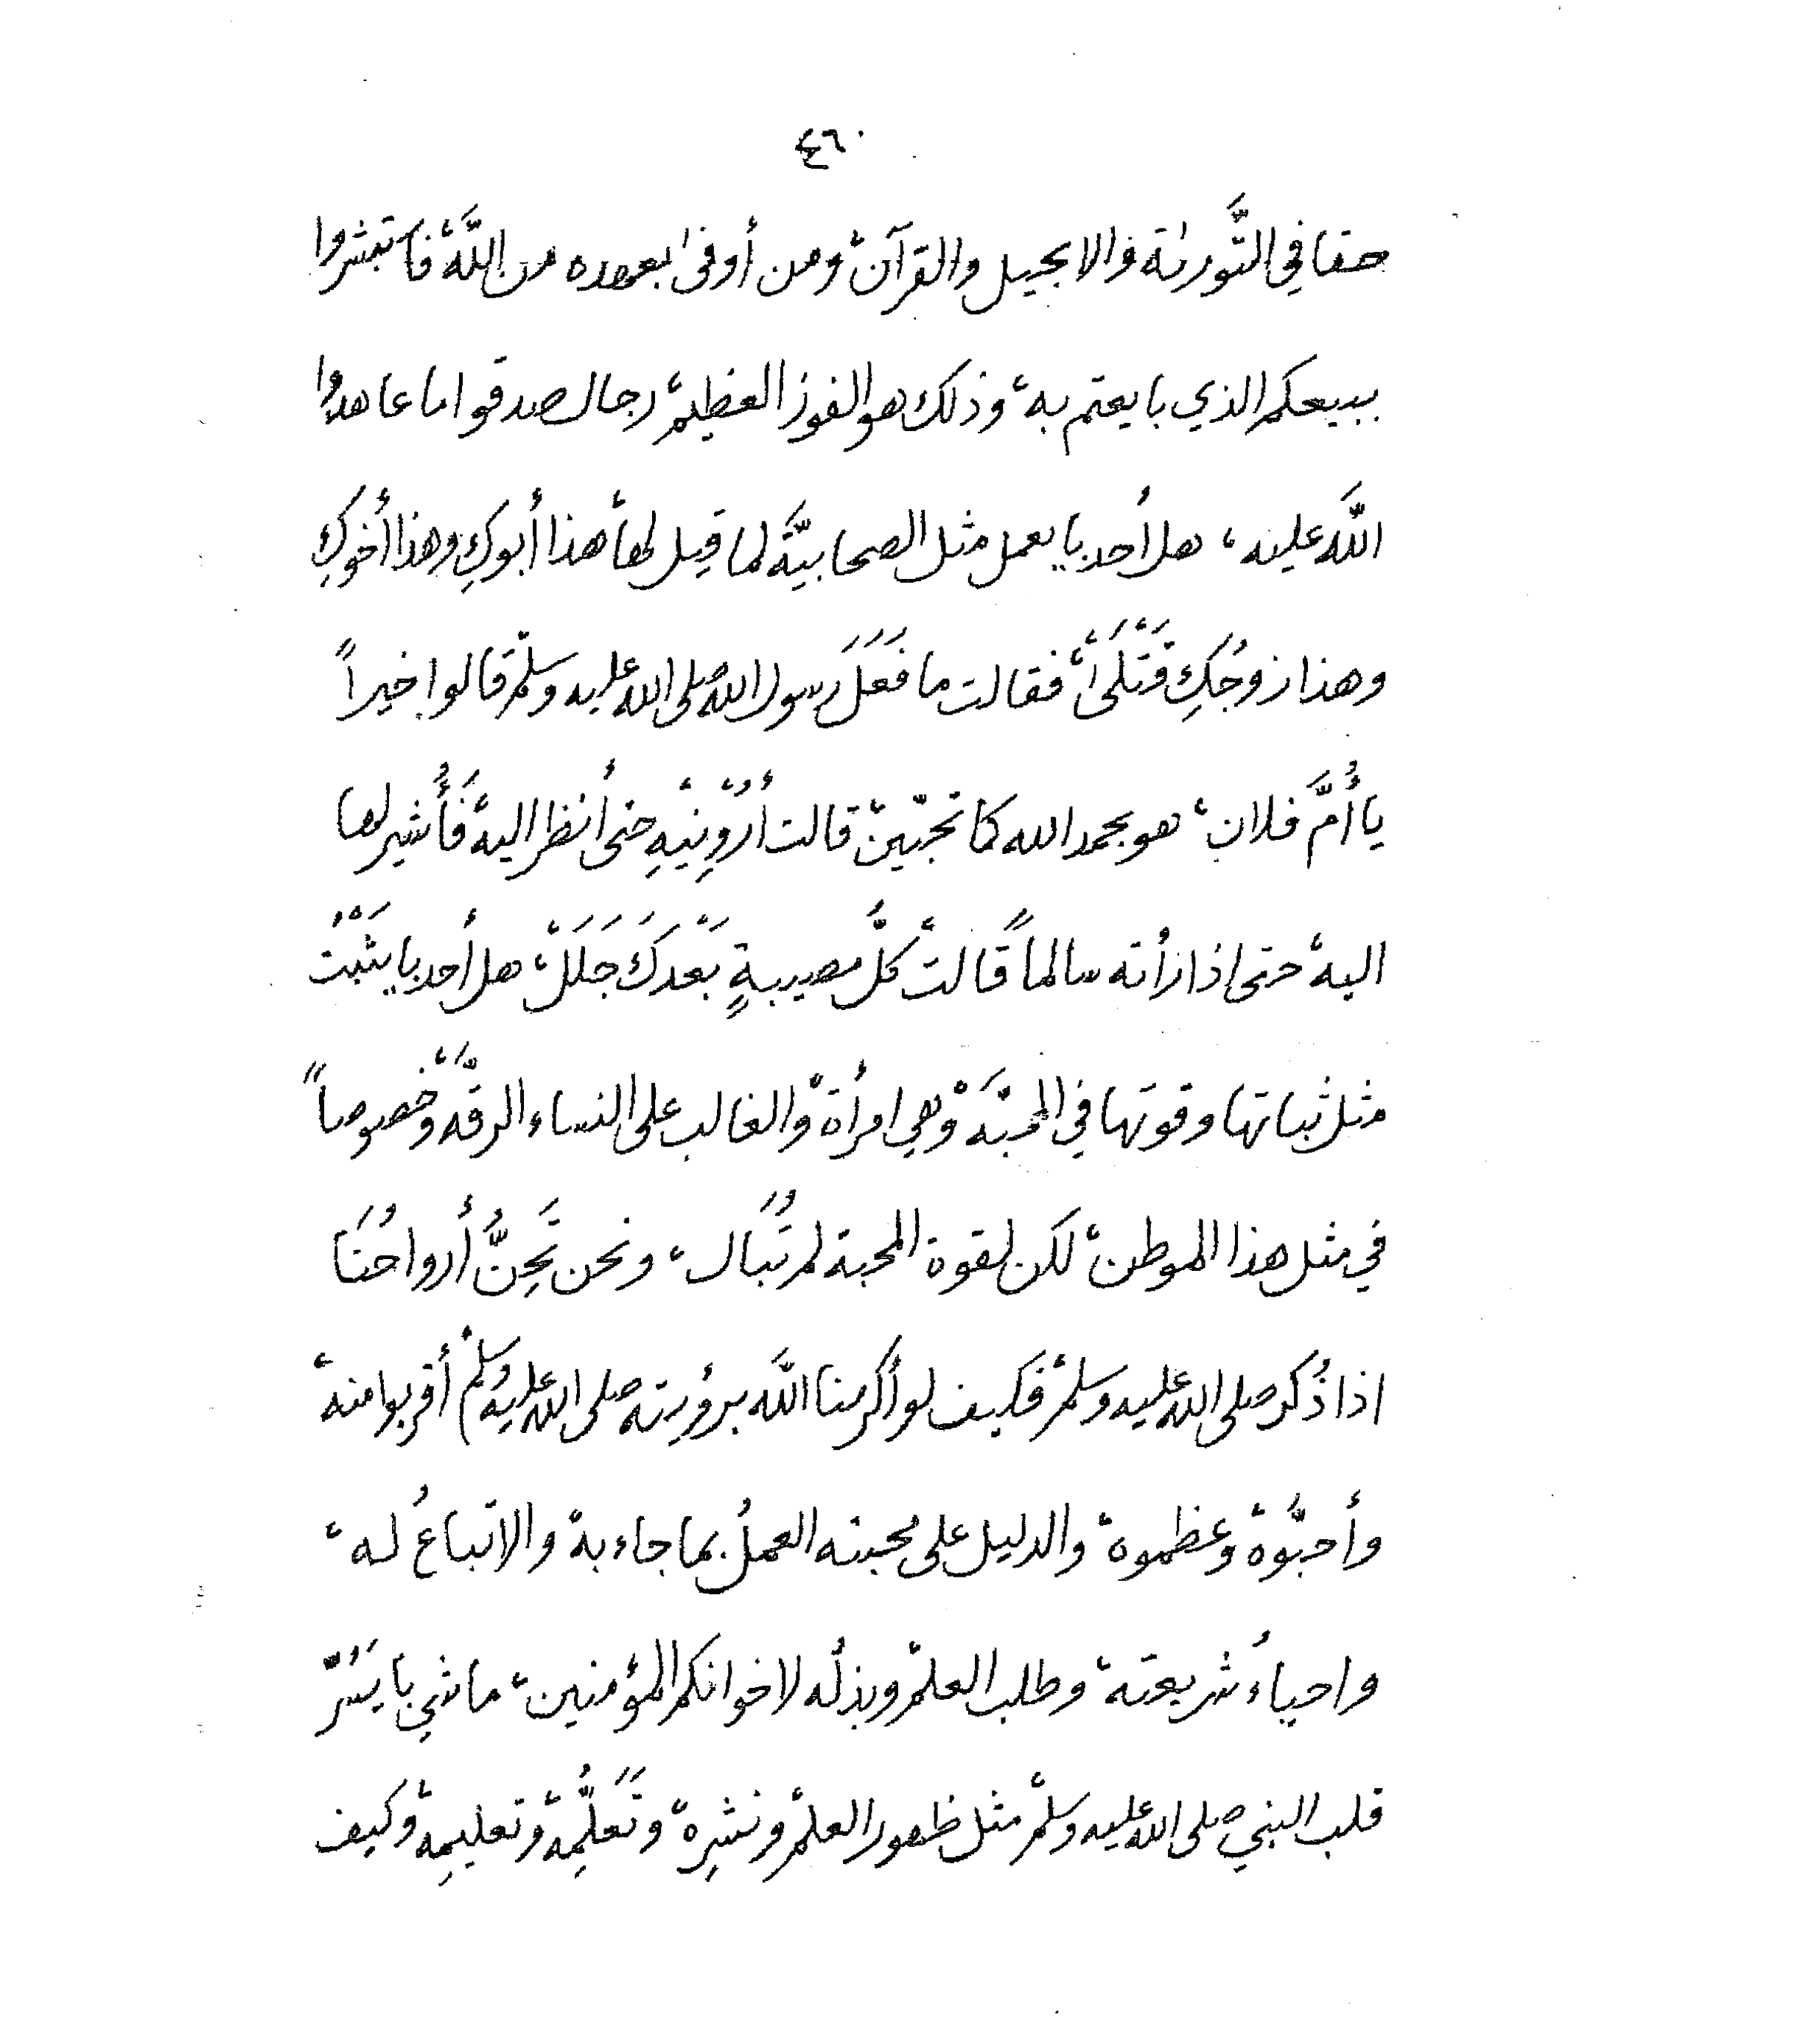 ٤٦٠
حقا في التَّوراة والانجيل والقرآن، ومن أوفى بعهده من اللَّه، فاستبشروا
ببيعكم الذي بايعتم به، وذلك هو الفوز العظيم، رجال صدقوا ما عاهدوا
اللَّه عليه، هل أحد با يعمل مثل الصحابيَّة لما قيل لها، هذا أبوكِ وهذا أخوكِ
وهذا زوجُكِ قَتْلَى، فقالت ما فَعَلَ رسول الله صلى الله عليه وسلم، قالوا خيراً
يا أُمَّ فلان، هو بحمد الله كما تحبّين، قالت أرُوِنِيْهِ حتى أنظر اليه، فَأُشير لها
اليه، حتى اذا رأته سالماً قالت كلُّ مصيبةٍ بَعْدَكَ جَلَلْ، هل أحد با يَثْبُت
مثل ثباتها وقوتها في المحبَّة، وهي امرأة، والغالب على النساء الرقَّة، وخصوصاً
في مثل هذا الموطن، لكن لقوة المحبة لم تُبَال، ونحن تَحِنُّ أرواحُنَا
اذا ذُكر صلى الله عليه وسلم، فكيف لو أكرمنا اللَّه برؤيته صلى الله عليه وسلم، أقربوا منه،
وأحبُّوه، وعظموه، والدليل على محبته العملُ بما جاء به، والاتباعُ له،
واحياءُ شريعته، وطلب العلم، وبذلُه لاخوانكم المؤمنين، ما شي با يَسُرّ
قلب النبي صلى الله عليه وسلم، مثل ظهور العلم، ونشرِه، وتَعَلُّمِه، وتعليمِه، وكيف